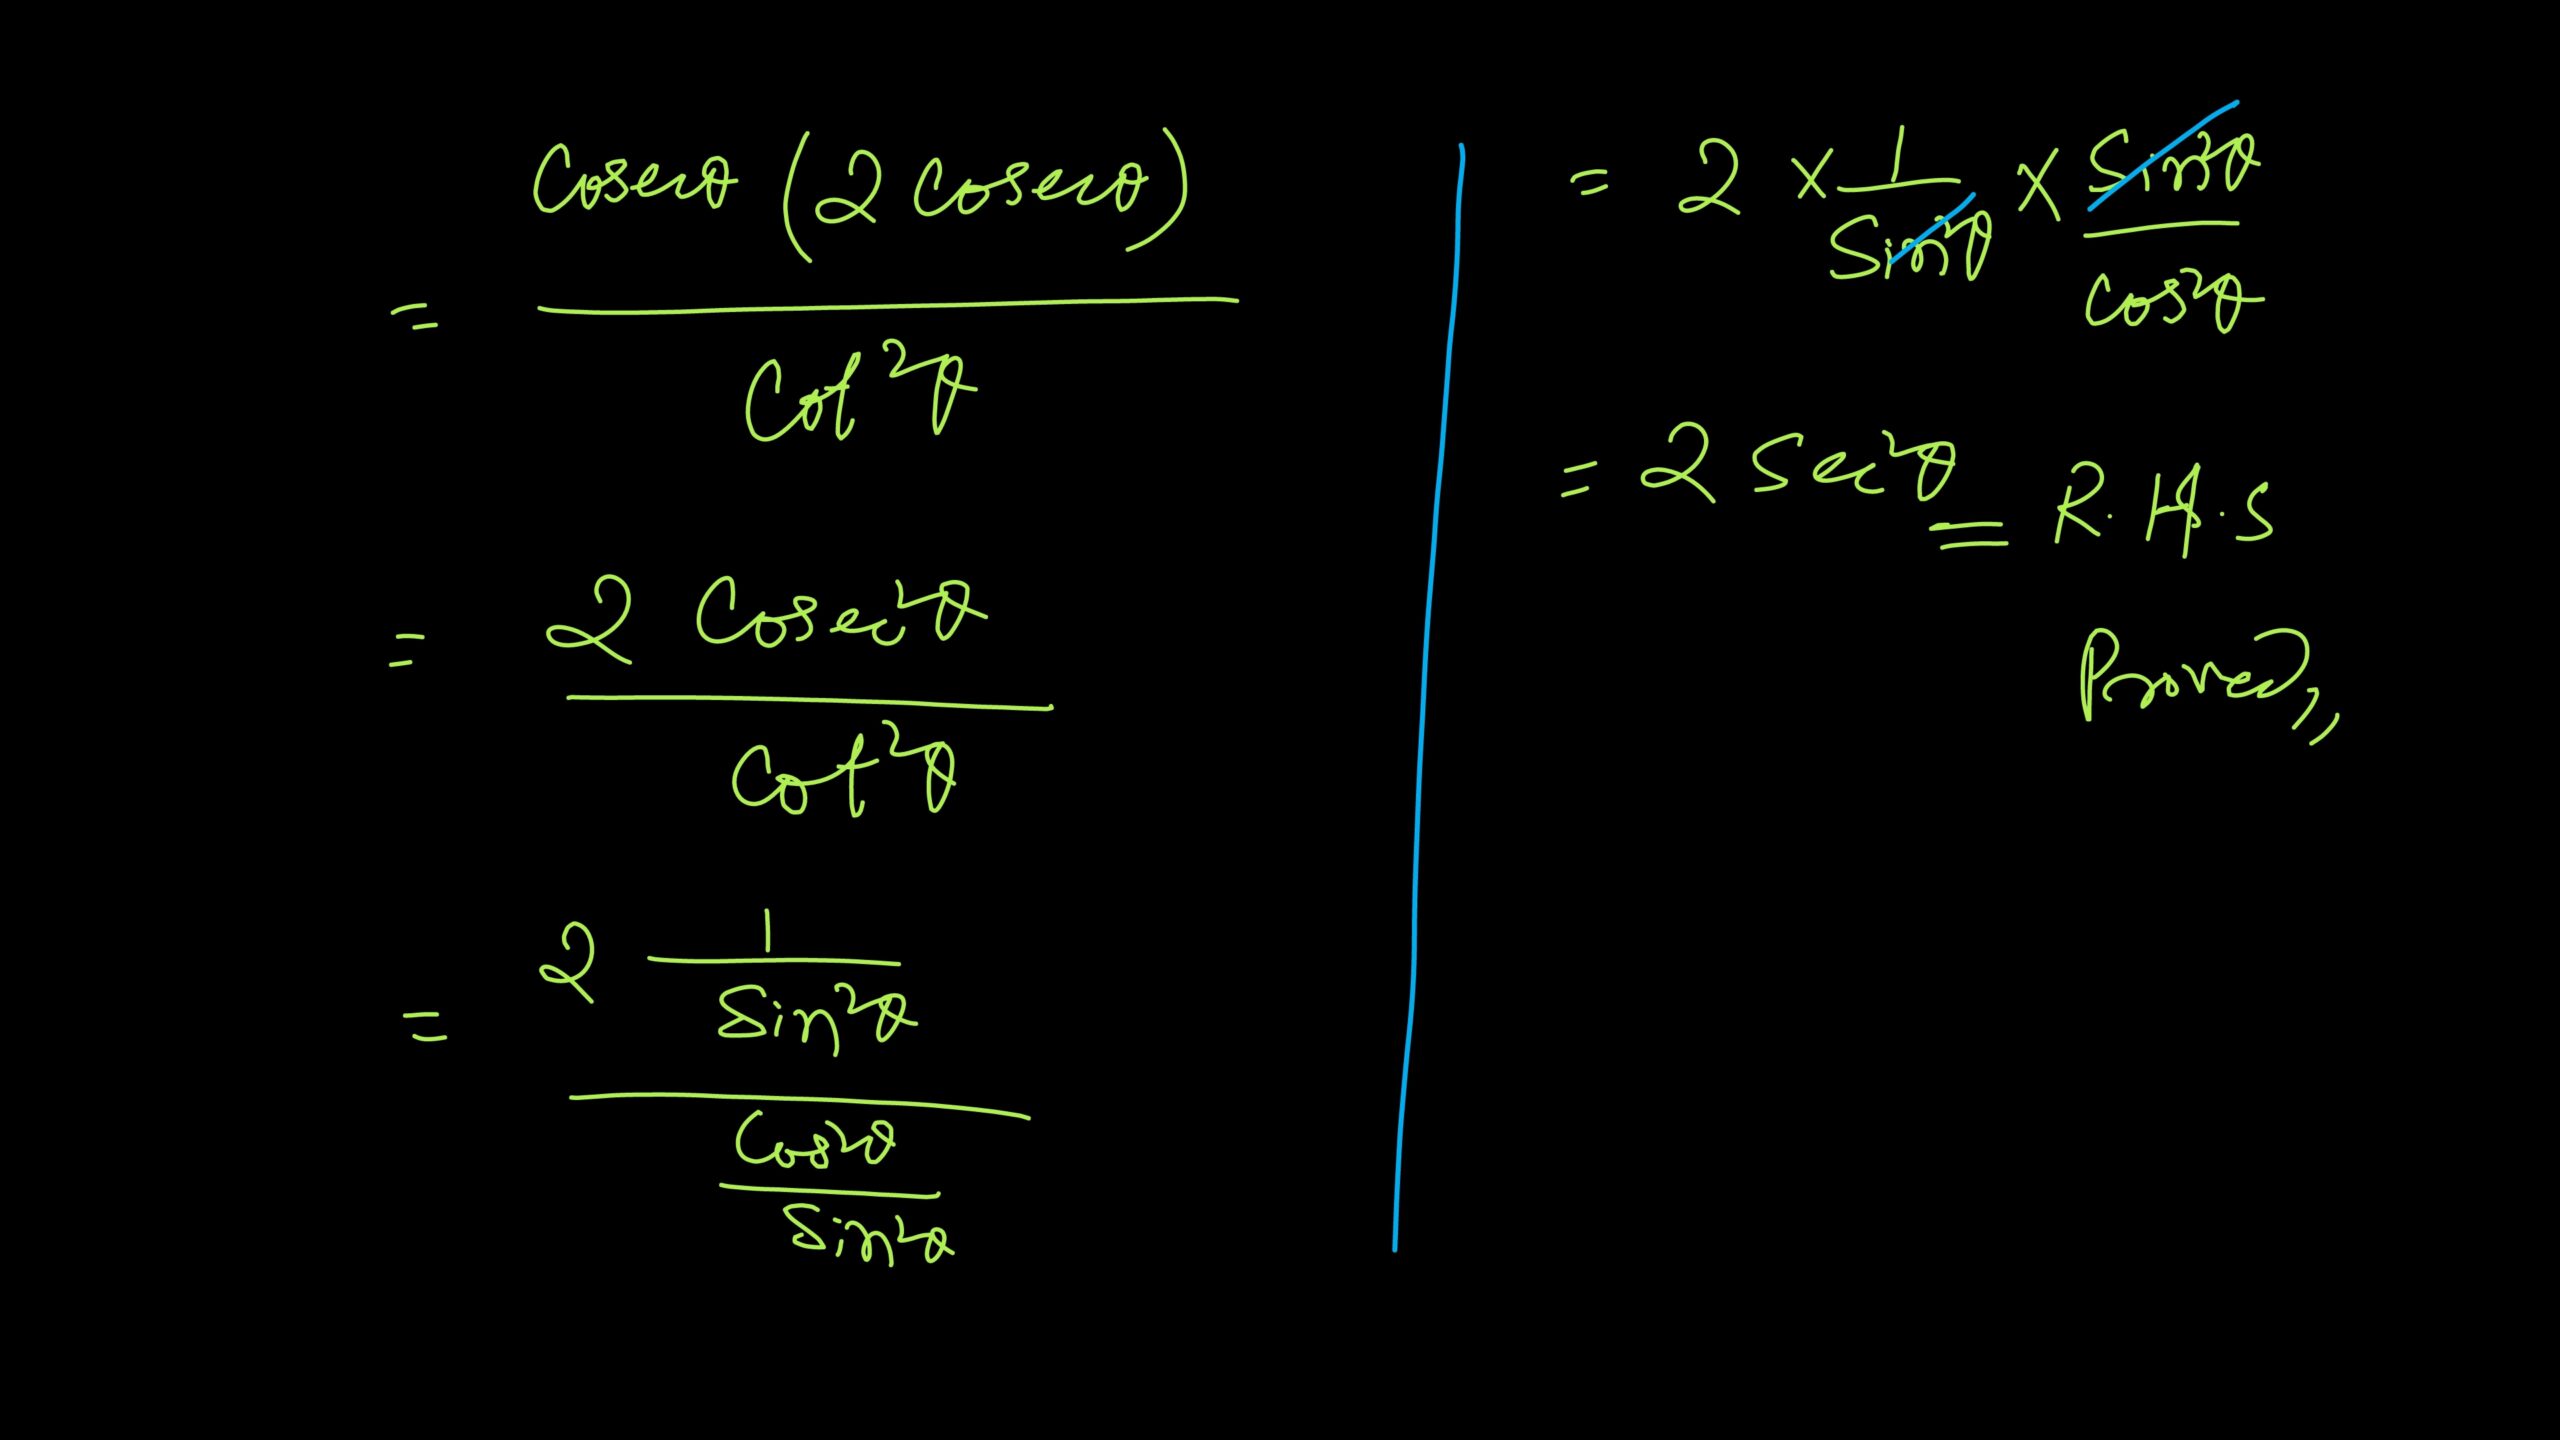 = Cosecθ (2 Cosecθ) / Cot²θ
= 2 Cosec²θ / Cot²θ
= 2 1/Sin²θ / Cos²θ/Sin²θ
= 2 × 1/Sin²θ × Sin²θ/Cos²θ
= 2 Sec²θ = R.H.S
Proved,,